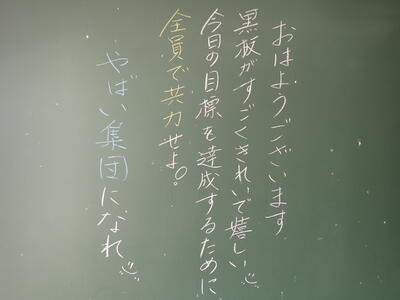 おはようございます
黒板がすごくきれいで嬉しい
今日の目標を達成するために
全員で共力せよ。
やばい集団になれ